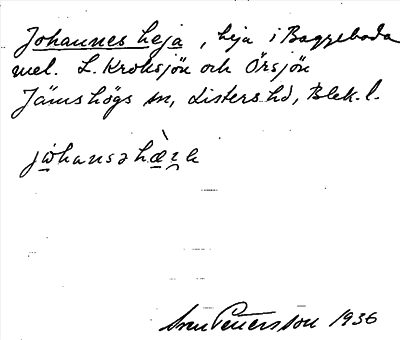 Johannes heja, heja i Baggeboda
mel. L. Kroksjön och Örsjön
Jämshögs sn, Listers hd, Blek. l.
Sven Petersson 1936